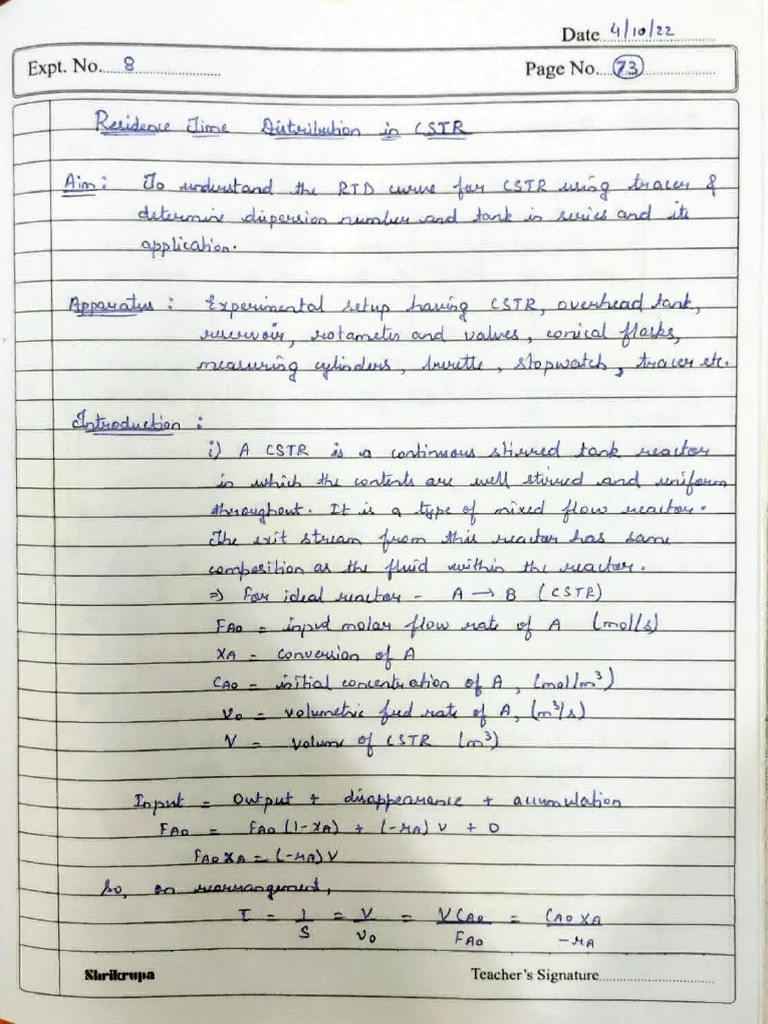 Date 4/10/22
Expt. No. 8
Page No. 73
Residence Time Distribution in CSTR
Aim: To understand the RTD curve for CSTR using tracer &
determine dispersion number and tank in series and its
application.
Apparatus: Experimental setup having CSTR, overhead tank,
reservoir, rotameter and valves, conical flasks,
measuring cylinders, burette, stopwatch, tracer etc.
Introduction:
i) A CSTR is a continuous stirred tank reactor
in which the contents are well stirred and uniform
throughout. It is a type of mixed flow reactor.
The exit stream from this reactor has same
composition as the fluid within the reactor.
⇒ For ideal reactor - A → B (CSTR)
FA0 = input molar flow rate of A (mol/s)
XA = conversion of A
CA0 = initial concentration of A, (mol/m³)
v0 = volumetric feed rate of A, (m³/s)
V = volume of CSTR (m³)
Input = Output + disappearance + accumulation
FA0 = FA0 (1-XA) + (-rA) V + 0
FA0 XA = (-rA) V
So, on rearrangement,
τ = 1/S = V/v0 = VCA0/FA0 = CA0 XA/-rA
Shrikrupa
Teacher's Signature